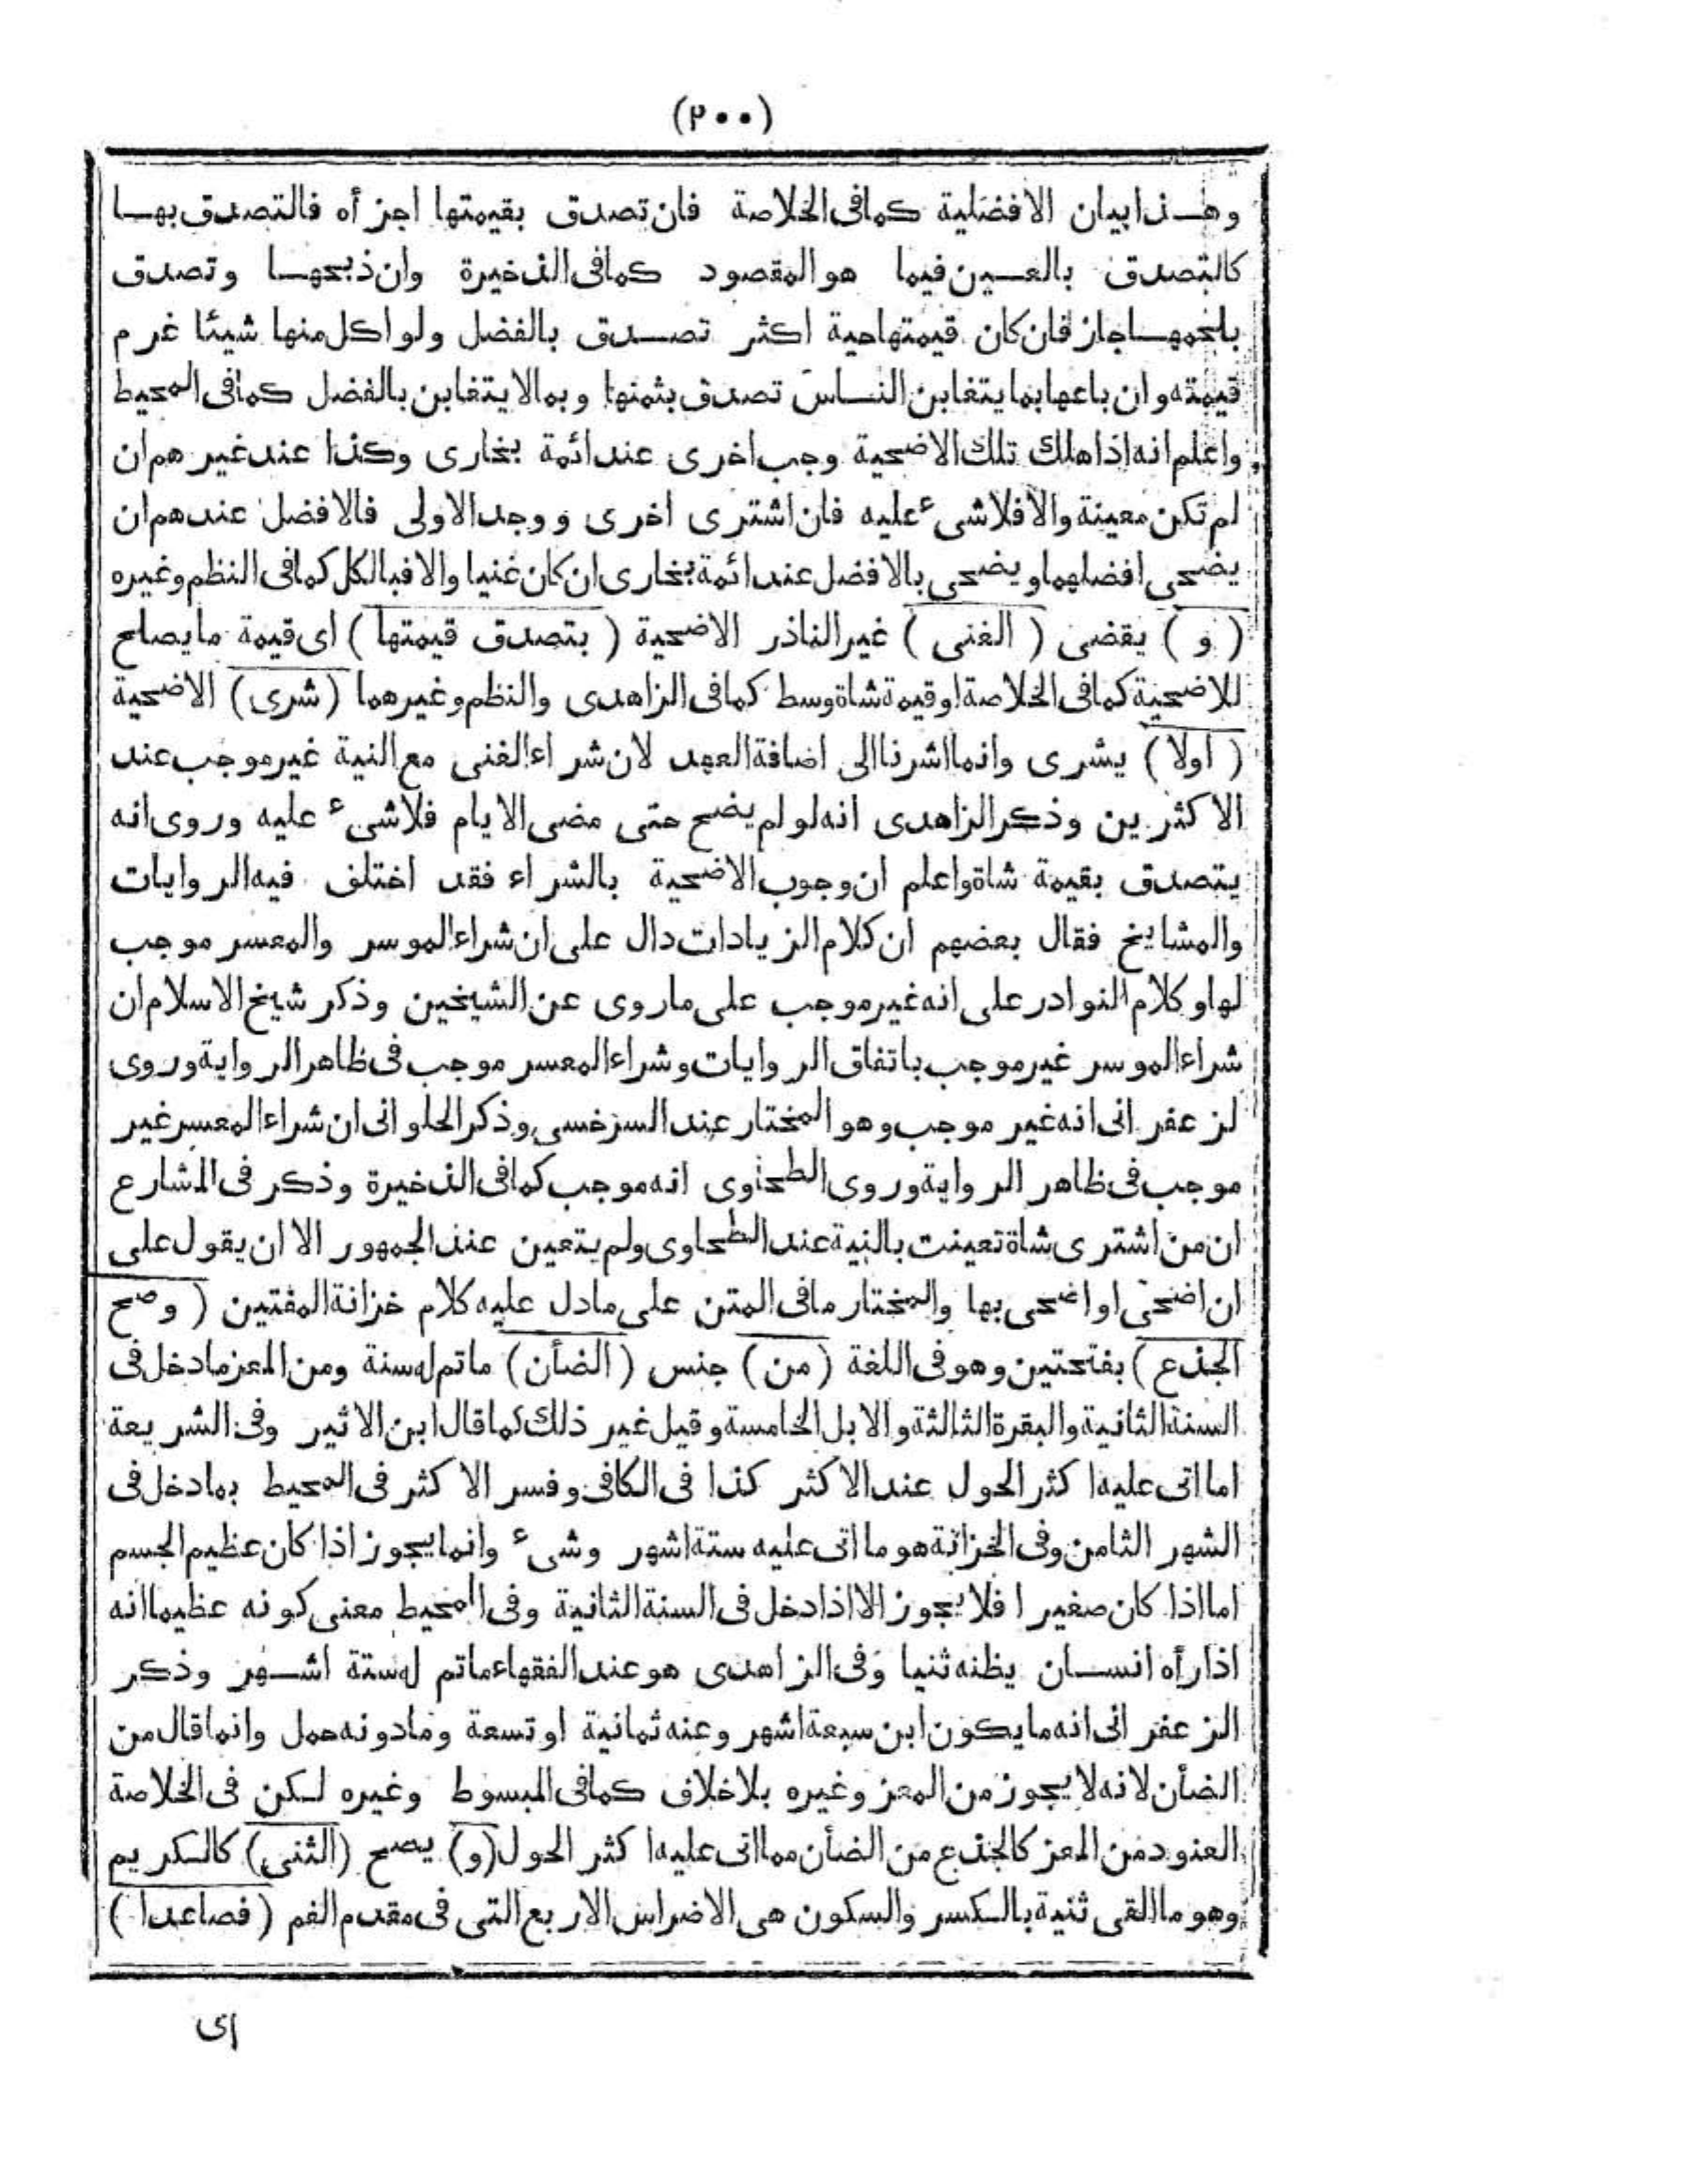 (٢٠٠)
وهذا بيان الافضلية كما فى الخلاصة فان تصدق بقيمتها اجزأه فالتصدق بها
كالتصدق بالعين فيما هو المقصود كما فى الذخيرة وان ذبحها وتصدق
بلحمها جاز فان كان قيمتها حية اكثر تصدق بالفضل ولو اكل منها شيئا غرم
قيمته وان باعها بما يتغابن الناس تصدق بثمنها وبما لا يتغابن بالفضل كما فى المحيط
واعلم انه اذا هلك تلك الاضحية وجب اخرى عند ائمة بخارى وكذا عند غيرهم ان
لم تكن معينة والا فلا شىء عليه فان اشترى اخرى ووجد الاولى فالافضل عندهم ان
يضحى افضلهما ويضحى بالافضل عند ائمة بخارى ان كان غنيا والا فبالكل كما فى النظم وغيره
(و) يقضى (الغنى) غير الناذر الاضحية (بتصدق قيمتها) اى قيمة ما يصلح
للاضحية كما فى الخلاصة او قيمة شاة وسط كما فى الزاهدى والنظم وغيرهما (شرى) الاضحية
(اولا) يشرى وانما اشرنا الى اضافة العهد لان شراء الغنى مع النية غير موجب عند
الاكثرين وذكر الزاهدى انه لو لم يضح حتى مضى الايام فلا شىء عليه وروى انه
يتصدق بقيمة شاة واعلم ان وجوب الاضحية بالشراء فقد اختلف فيه الروايات
والمشايخ فقال بعضهم ان كلام الزيادات دال على ان شراء الموسر والمعسر موجب
لها وكلام النوادر على انه غير موجب على ما روى عن الشيخين وذكر شيخ الاسلام ان
شراء الموسر غير موجب باتفاق الروايات وشراء المعسر موجب فى ظاهر الرواية وروى
لزعفرانى انه غير موجب وهو المختار عند السرخسى وذكر الحلوانى ان شراء المعسر غير
موجب فى ظاهر الرواية وروى الطحاوى انه موجب كما فى الذخيرة وذكر فى المشارع
ان من اشترى شاة تعينت بالنية عند الطحاوى ولم يتعين عند الجمهور الا ان يقول على
ان اضحى او اضحى بها والمختار ما فى المتن على ما دل عليه كلام خزانة المفتين (وصح
الجذع) بفتحتين وهو فى اللغة (من) جنس (الضأن) ما تم له سنة ومن المعز ما دخل فى
السنة الثانية والبقرة الثالثة والابل الخامسة وقيل غير ذلك كما قال ابن الاثير وفى الشريعة
اما اتى عليه اكثر الحول عند الاكثر كذا فى الكافى وفسر الاكثر فى المحيط بما دخل فى
الشهر الثامن وفى الخزانة هو ما اتى عليه ستة اشهر وشىء وانما يجوز اذا كان عظيم الجسم
اما اذا كان صغيرا فلا يجوز الا اذا دخل فى السنة الثانية وفى المحيط معنى كونه عظيما انه
اذا رأه انسان يظنه ثنيا وفى الزاهدى هو عند الفقهاء ما تم له ستة اشهر وذكر
الزعفرانى انه ما يكون ابن سبعة اشهر وعنه ثمانية او تسعة وما دونه حمل وانما قال من
الضأن لانه لا يجوز من المعز وغيره بلا خلاف كما فى المبسوط وغيره لكن فى الخلاصة
العنود من المعز كالجذع من الضأن مما اتى عليه اكثر الحول (و) يصح (الثنى) كالكريم
وهو ما القى ثنية بالكسر والسكون هى الاضراس الاربع التى فى مقدم الفم (فصاعدا)
اى